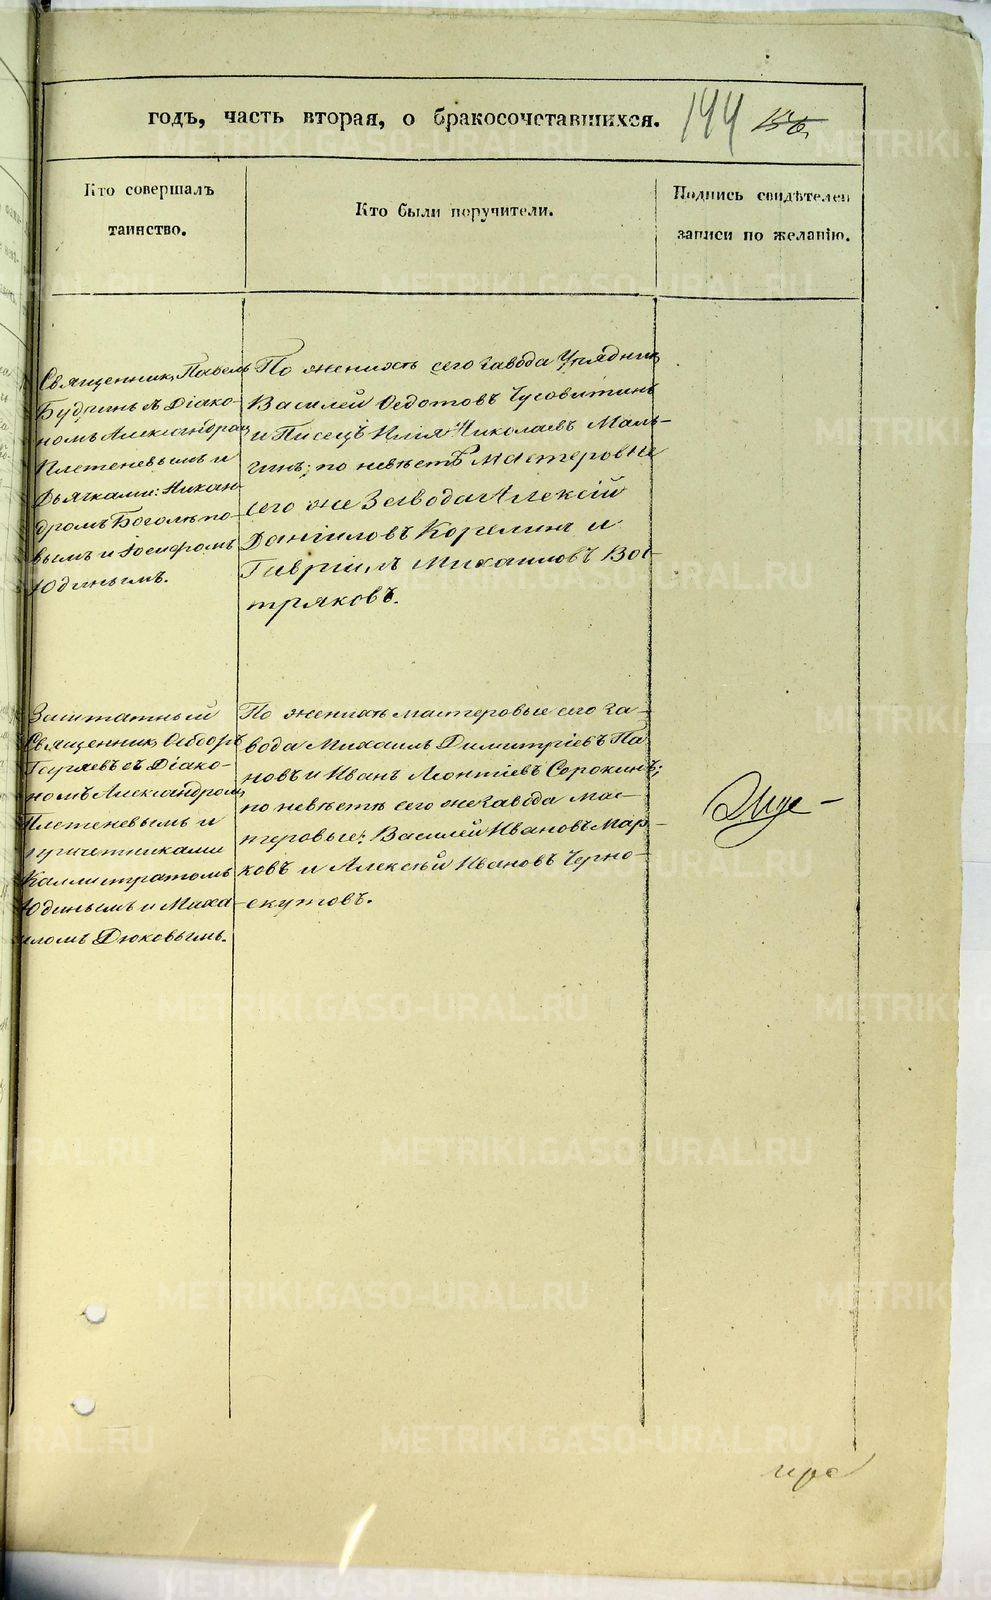 годъ, часть вторая, о бракосочетавшихся. 144
Кто совершалъ
таинство.
Кто были поручители.
Подпись свидѣтелей
записи по желанію.
Священник Павелъ
Будринъ съ Діако-
номъ Александромъ
Плетеневымъ и
Дьячками: Никан-
дромъ Боголѣпо-
вымъ и Іосифомъ
Юдинымъ.
По женихѣ сего завода Урядник
Василей Ѳедотовъ Чусовитинъ
и Писецъ Илія Николаевъ Маль-
гинъ; по невѣстѣ Мастеровые
сего же Завода Алексій
Даніиловъ Корелинъ и
Гавріилъ Михаиловъ Вос-
тряковъ.
Заштатный
Священник Ѳеодоръ
съ Діако-
номъ Александромъ
Плетеневымъ и
причетниками
Каллистратомъ
Юдинымъ и Миха-
иломъ Дюковымъ.
По женихѣ мастеровые сего за-
вода Михаилъ Димитріевъ Па-
новъ и Иванъ Леонтіевъ Сорокинъ;
по невѣстѣ сего же завода мас-
теровые: Василей Ивановъ Мар-
ковъ и Алексѣй Ивановъ Черно-
скутовъ.
METRIKI.GASO-URAL.RU